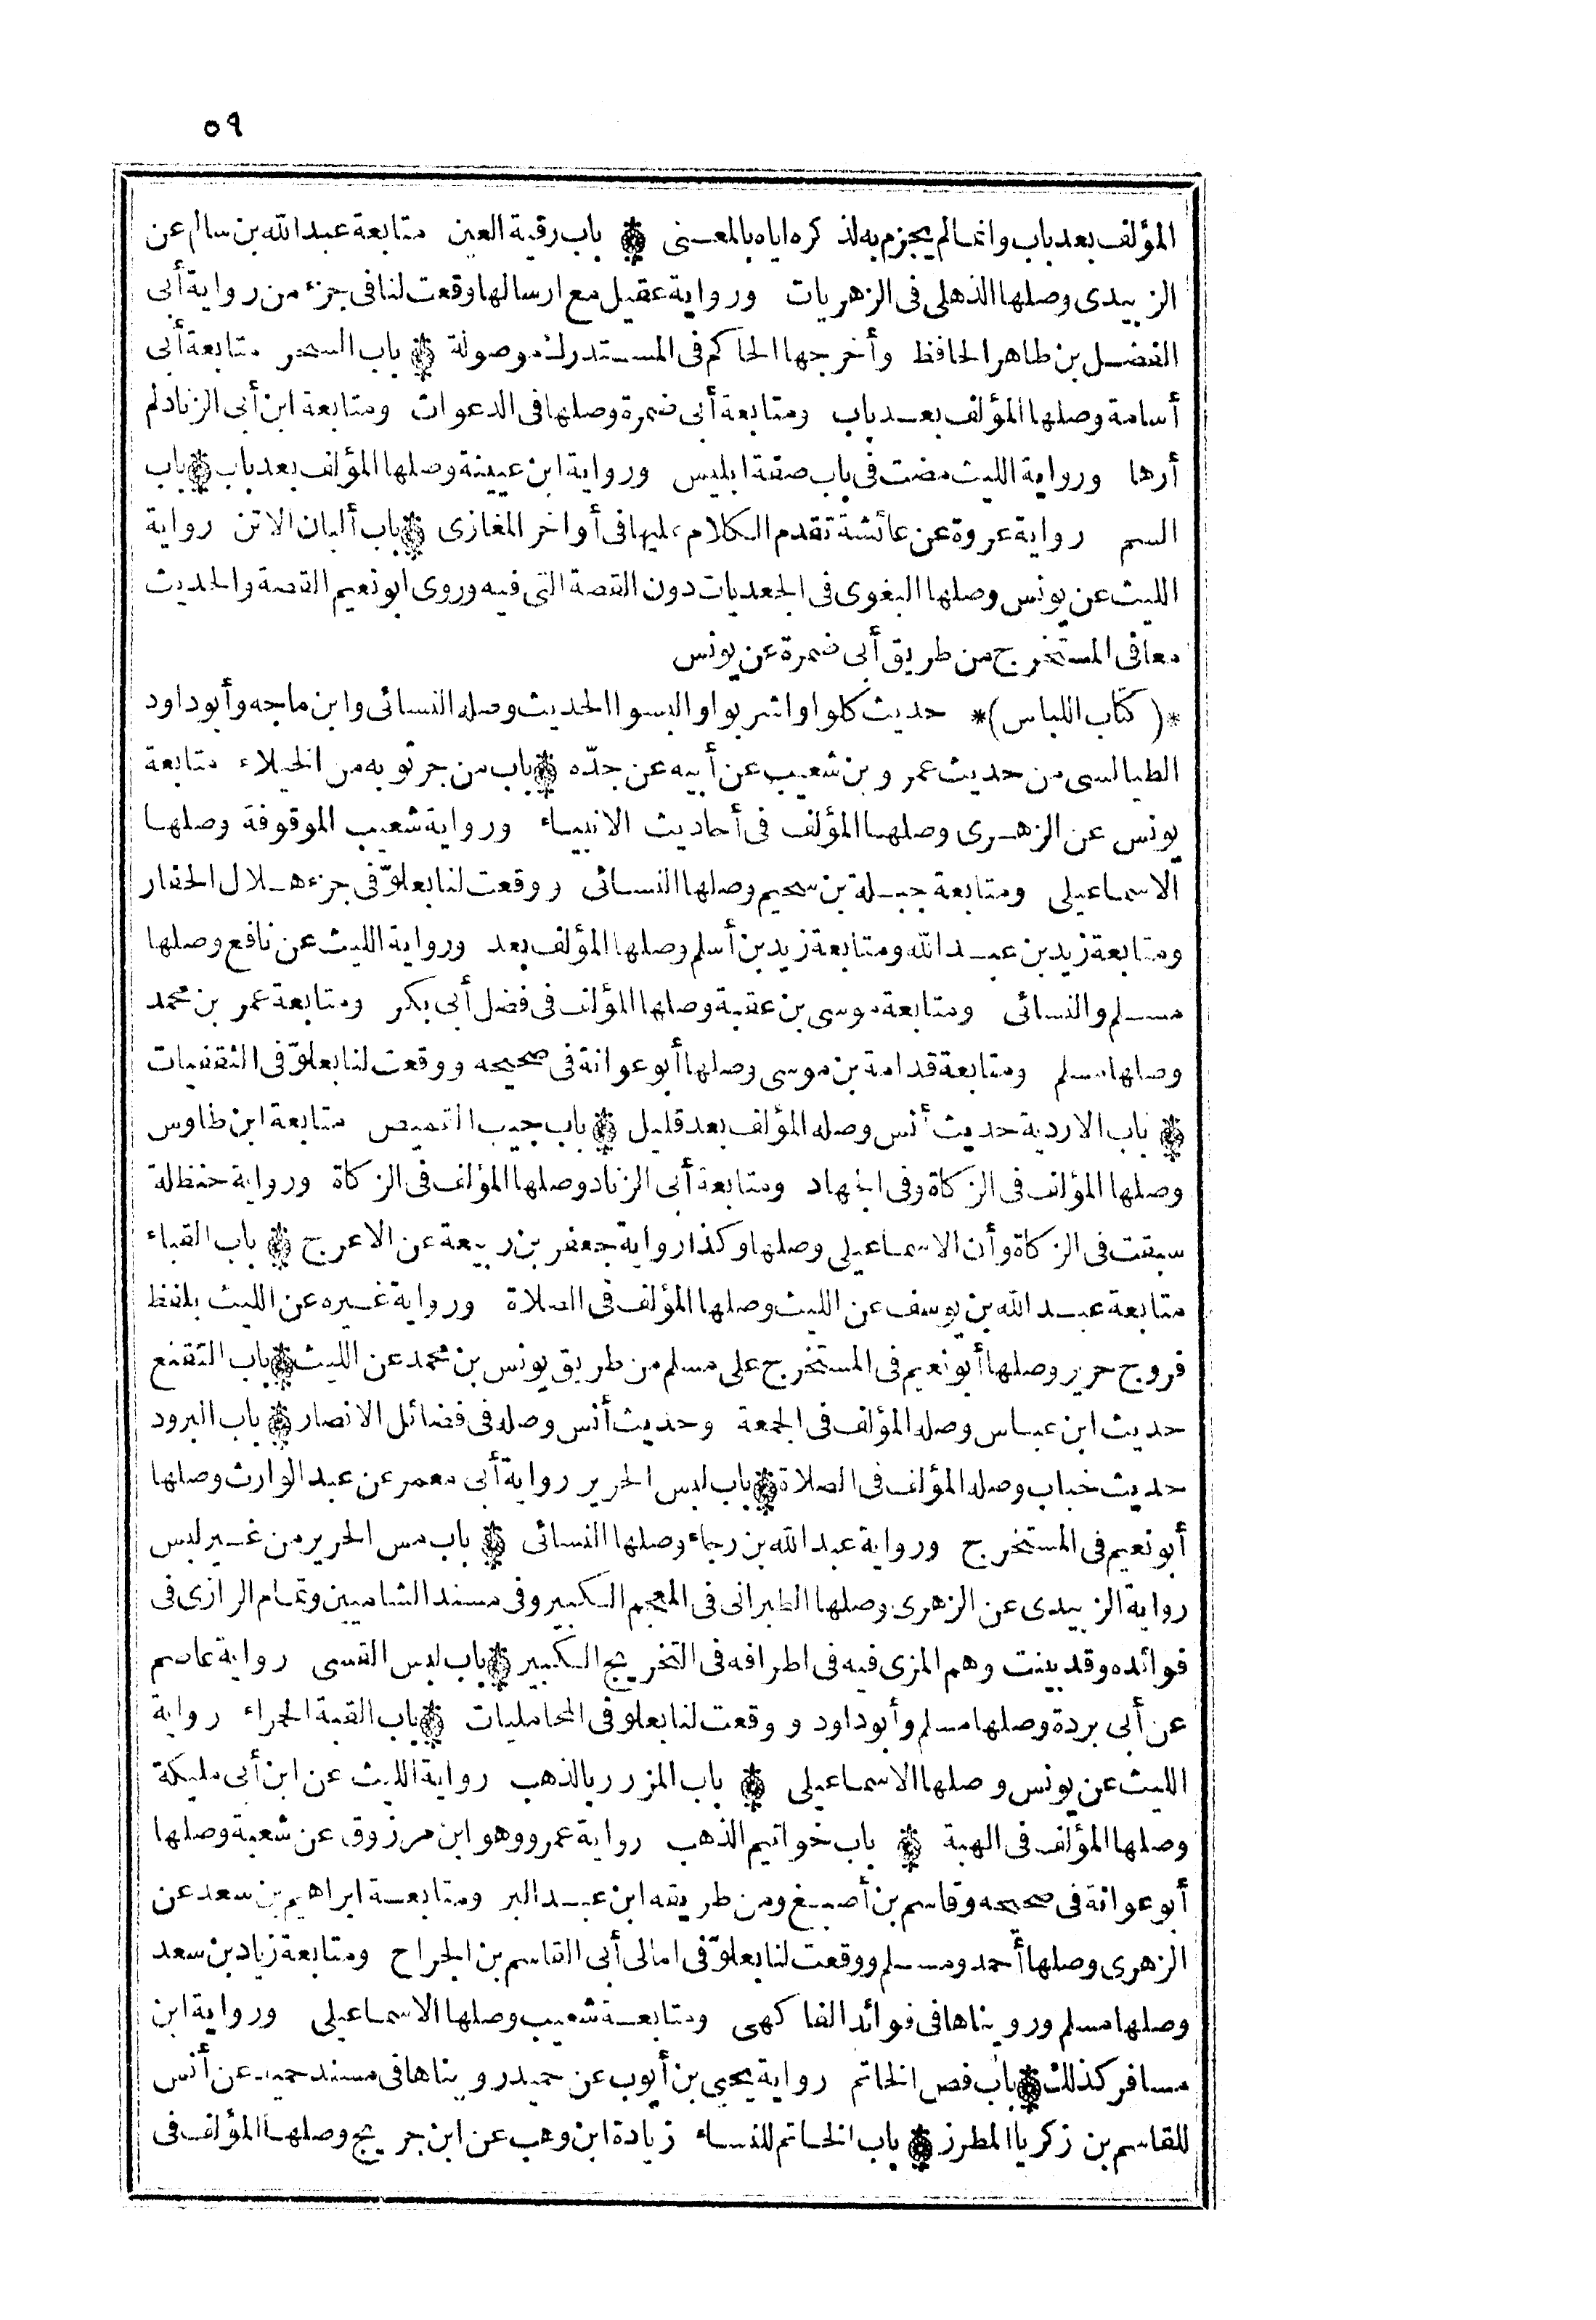 ٥٩
المؤلف بعد باب وانما لم يجزم به لذكره اياه بالمعنى ❁ باب رقية العين متابعة عبد الله بن سالم عن
الزبيدى وصلها الذهلى فى الزهريات ورواية عقيل مع ارسالها وقعت لنا فى جزء من رواية أبى
الفضل بن طاهر الحافظ وأخرجها الحاكم فى المستدرك موصولة ❁ باب السحر متابعة أبى
أسامة وصلها المؤلف بعد باب ومتابعة أبى ضمرة وصلها فى الدعوات ومتابعة ابن أبى الزناد لم
أرها ورواية الليث مضت فى باب صفة ابليس ورواية ابن عيينة وصلها المؤلف بعد باب ❁ باب
السم رواية عروة عن عائشة تقدم الكلام عليها فى أواخر المغازى ❁ باب ألبان الاتن رواية
الليث عن يونس وصلها البغوى فى الجعديات دون القصة التى فيه وروى ابو نعيم القصة والحديث
معا فى المستخرج من طريق أبى ضمرة عن يونس
*(كتاب اللباس)* حديث كلوا واشربوا والبسوا الحديث وصله النسائى وابن ماجه وأبو داود
الطيالسى من حديث عمرو بن شعيب عن أبيه عن جدّه ❁ باب من جر ثوبه من الخيلاء متابعة
يونس عن الزهرى وصلها المؤلف فى أحاديث الانبياء ورواية شعيب الموقوفة وصلها
الاسماعيلى ومتابعة جبلة بن سحيم وصلها النسائى ووقعت لنا بعلوّ فى جزء هلال الحفار
ومتابعة زيد بن عبد الله ومتابعة زيد بن أسلم وصلها المؤلف بعد ورواية الليث عن نافع وصلها
مسلم والنسائى ومتابعة موسى بن عقبة وصلها المؤلف فى فضل أبى بكر ومتابعة عمر بن محمد
وصلها مسلم ومتابعة قدامة بن موسى وصلها أبو عوانة فى صحيحه ووقعت لنا بعلوّ فى الثقفيات
❁ باب الاردية حديث أنس وصله المؤلف بعد قليل ❁ باب جيب القميص متابعة ابن طاوس
وصلها المؤلف فى الزكاة وفى الجهاد ومتابعة أبى الزناد وصلها المؤلف فى الزكاة ورواية حنظلة
سبقت فى الزكاة وأن الاسماعيلى وصلها وكذا رواية جعفر بن ربيعة عن الاعرج ❁ باب القباء
متابعة عبد الله بن يوسف عن الليث وصلها المؤلف فى الصلاة ورواية غيره عن الليث بلفظ
فروج حرير وصلها أبو نعيم فى المستخرج على مسلم من طريق يونس بن محمد عن الليث ❁ باب التقنع
حديث ابن عباس وصله المؤلف فى الجمعة وحديث أنس وصله فى فضائل الانصار ❁ باب البرود
حديث خباب وصله المؤلف فى الصلاة ❁ باب لبس الحرير رواية أبى معمر عن عبد الوارث وصلها
أبو نعيم فى المستخرج ورواية عبد الله بن رجاء وصلها النسائى ❁ باب مس الحرير من غير لبس
رواية الزبيدى عن الزهرى وصلها الطبرانى فى المعجم الكبير وفى مسند الشاميين وتمام الرازى فى
فوائده وقد بينت وهم المزى فيه فى اطرافه فى التخريج الكبير ❁ باب لبس القسى رواية عاصم
عن أبى بردة وصلها مسلم وأبو داود ووقعت لنا بعلو فى المحامليات ❁ باب القبة الحمراء رواية
الليث عن يونس وصلها الاسماعيلى ❁ باب المزرر بالذهب رواية الليث عن ابن أبى مليكة
وصلها المؤلف فى الهبة ❁ باب خواتيم الذهب رواية عمرو وهو ابن مرزوق عن شعبة وصلها
أبو عوانة فى صحيحه وقاسم بن أصبغ ومن طريقه ابن عبد البر ومتابعة ابراهيم بن سعد عن
الزهرى وصلها أحمد ومسلم ووقعت لنا بعلوّ فى امالى أبى القاسم بن الجراح ومتابعة زياد بن سعد
وصلها مسلم ورويناها فى فوائد الفاكهى ومتابعة شعيب وصلها الاسماعيلى ورواية ابن
مسافر كذلك ❁ باب فص الخاتم رواية يحيى بن أيوب عن حميد رويناها فى مسند حميد عن أنس
للقاسم بن زكريا المطرز ❁ باب الخاتم للنساء زيادة ابن وهب عن ابن جريج وصلها المؤلف فى